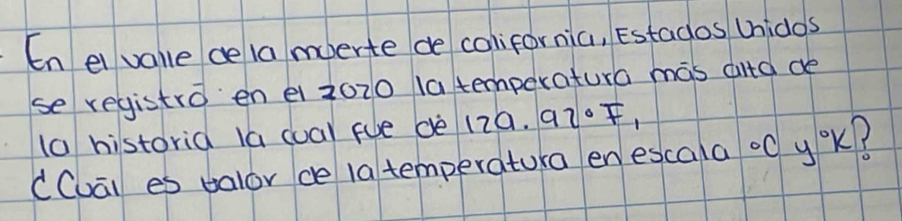 En el valle de la muerte de california, Estados Unidos
se registró en el 2020 la temperatura más alta de
la historia la cual fue de 129.92°F,
¿Cuál es valor de la temperatura en escala °C y °K?